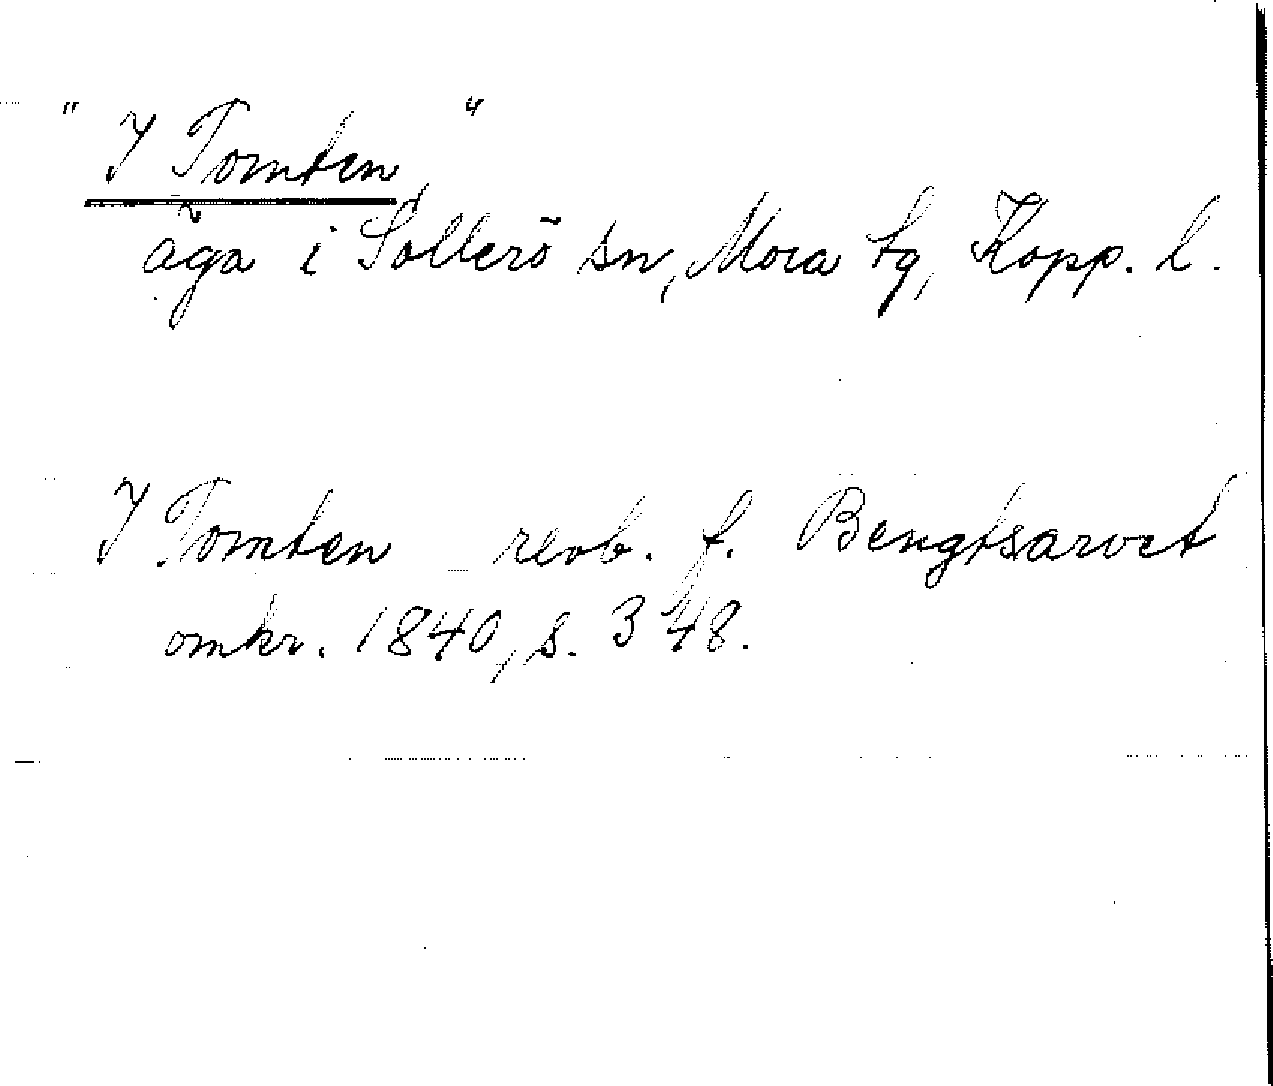 " I Tomten "
äga i Sollerö sn, Mora tg, Kopp. l.
I Tomten revb. f. Bengtsarvet
omkr. 1840, s. 348.